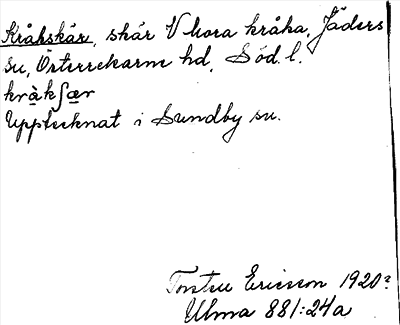 Kråkskär, skär V Stora kråka, Jäders
sn, Österrekarne hd, Söd. l.
kråkʃær
Upptecknat i Sundby sn.
Torsten Ericsson 1920?
Ulma 881:24a